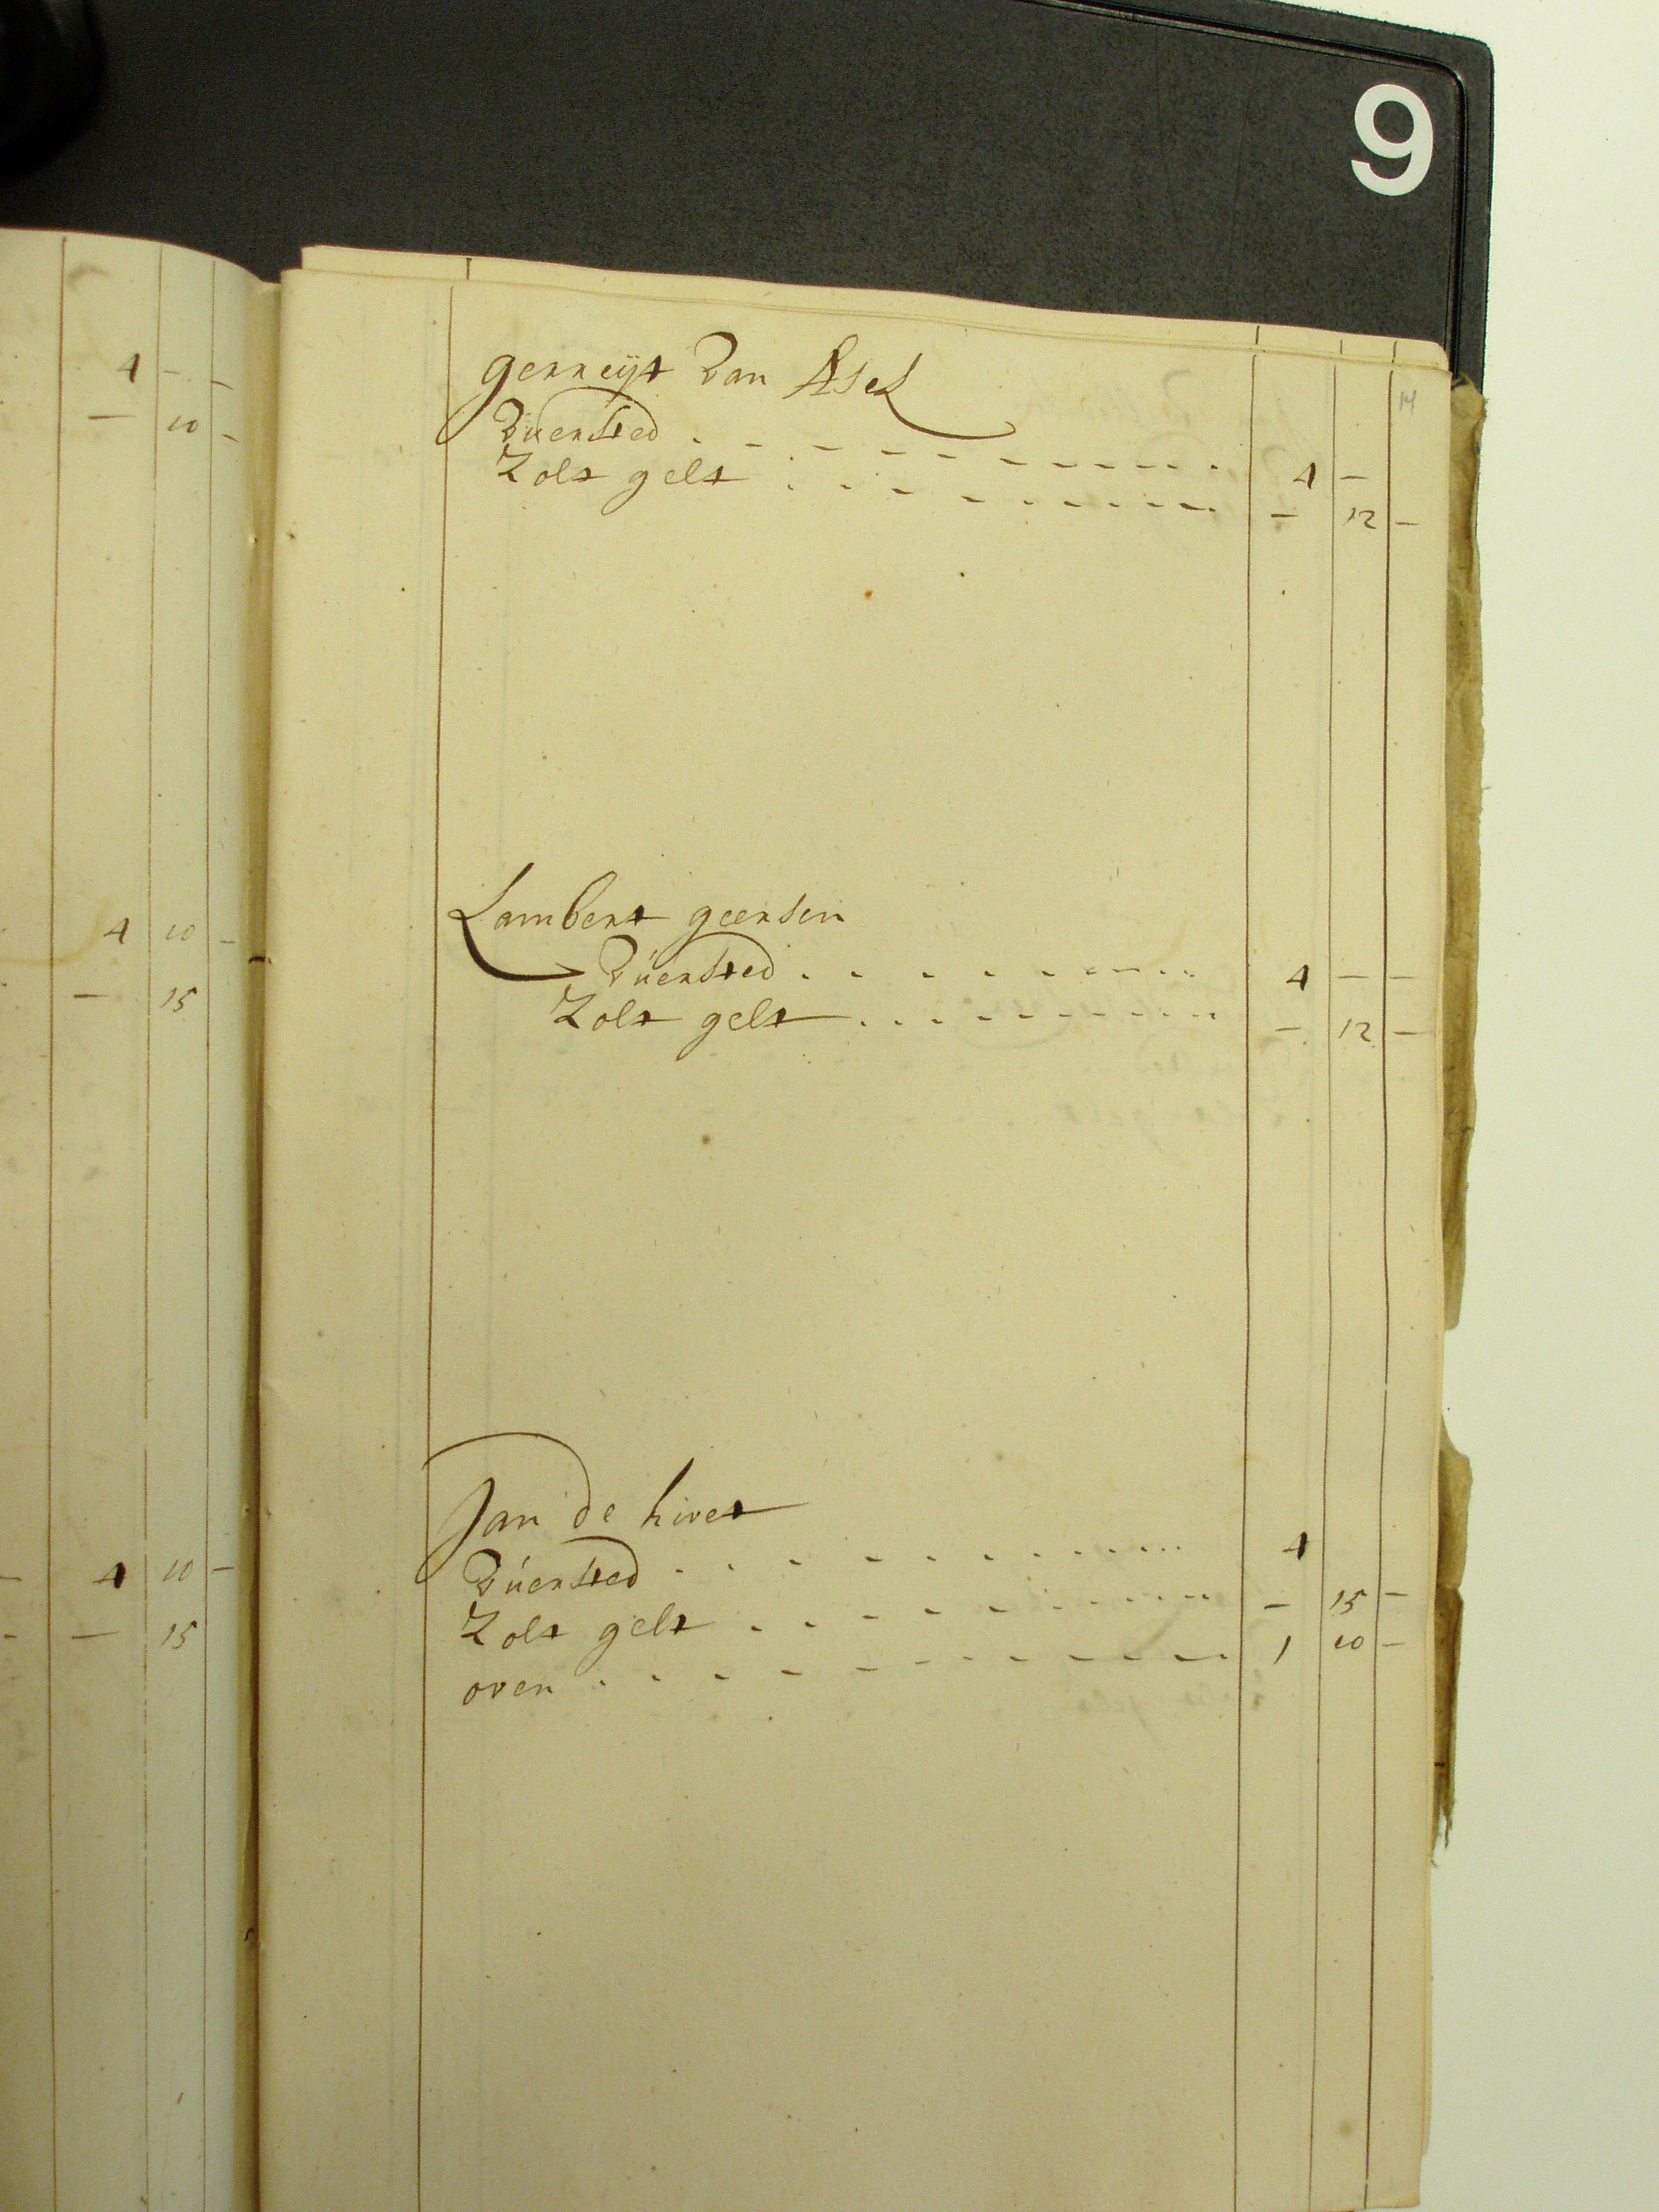 9
14
4 - -
- 10 -
4 10 -
- 15
- 4 10 -
- - 15
gerreijt van Asel
vuersted . - - - - - - - - - - 4 -
Zolt gelt . . - - - - - - - - - 12 -
Lambert geersen
vuersted . . - - - - - - - - 4 - -
Zolt gelt . . . - - - - - - - - 12 -
Jan de hivet
vuersted . . - - - - - - - - 4
Zolt gelt . . - - - - - - - - - 15 -
oven . . - - - - - - - - - 1 10 -